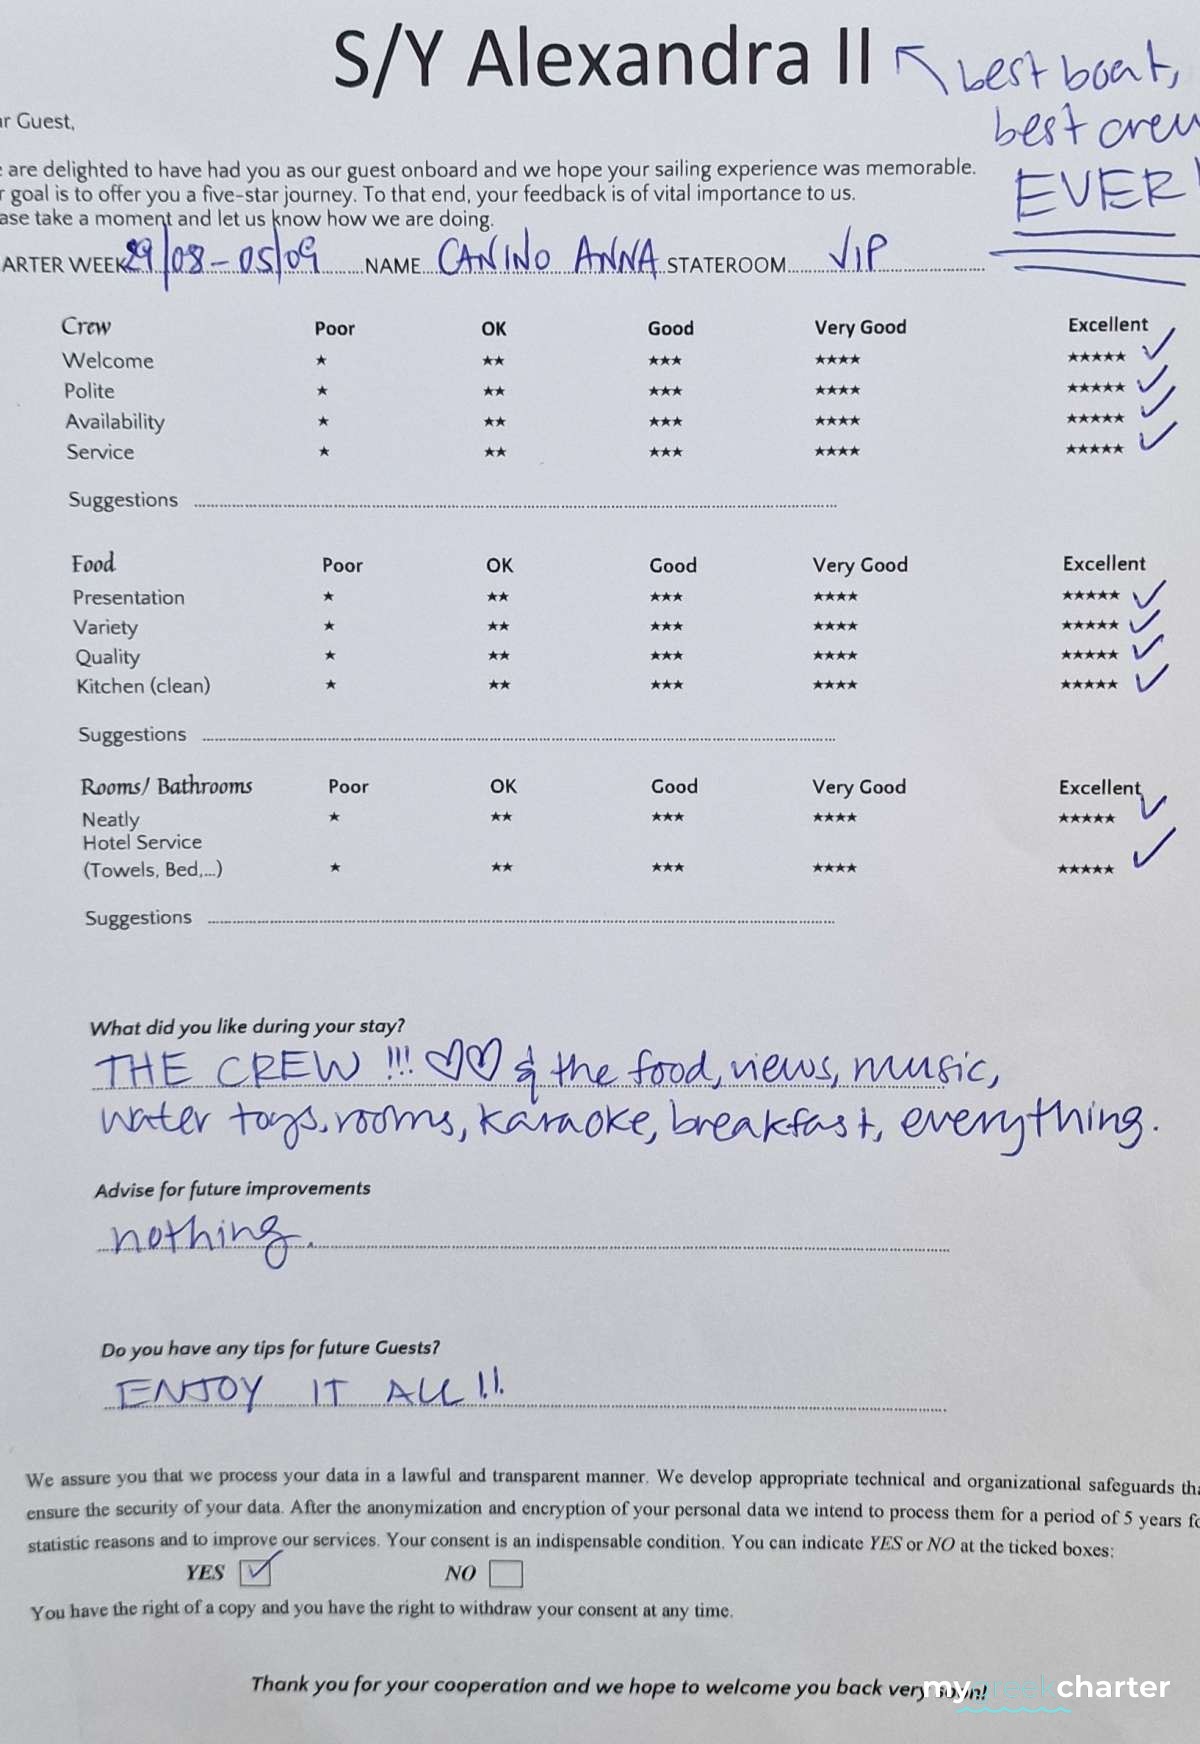 S/Y Alexandra II
best boat,
best crew
EVER!
r Guest,
are delighted to have had you as our guest onboard and we hope your sailing experience was memorable.
r goal is to offer you a five-star journey. To that end, your feedback is of vital importance to us.
ase take a moment and let us know how we are doing.
ARTER WEEK 29/08-05/09 NAME CANINO ANNA STATEROOM VIP
Crew Poor OK Good Very Good Excellent
Welcome ★ ★★ ★★★ ★★★★ ★★★★★ ✓
Polite ★ ★★ ★★★ ★★★★ ★★★★★ ✓
Availability ★ ★★ ★★★ ★★★★ ★★★★★ ✓
Service ★ ★★ ★★★ ★★★★ ★★★★★ ✓
Suggestions
Food Poor OK Good Very Good Excellent
Presentation ★ ★★ ★★★ ★★★★ ★★★★★ ✓
Variety ★ ★★ ★★★ ★★★★ ★★★★★ ✓
Quality ★ ★★ ★★★ ★★★★ ★★★★★ ✓
Kitchen (clean) ★ ★★ ★★★ ★★★★ ★★★★★ ✓
Suggestions
Rooms/ Bathrooms Poor OK Good Very Good Excellent
Neatly ★ ★★ ★★★ ★★★★ ★★★★★ ✓
Hotel Service
(Towels, Bed,...) ★ ★★ ★★★ ★★★★ ★★★★★ ✓
Suggestions
What did you like during your stay?
THE CREW!!! ♡♡ & the food, views, music,
water toys, rooms, karaoke, breakfast, everything.
Advise for future improvements
nothing.
Do you have any tips for future Guests?
ENJOY IT ALL!!
We assure you that we process your data in a lawful and transparent manner. We develop appropriate technical and organizational safeguards tha
ensure the security of your data. After the anonymization and encryption of your personal data we intend to process them for a period of 5 years fo
statistic reasons and to improve our services. Your consent is an indispensable condition. You can indicate YES or NO at the ticked boxes:
YES ✓ NO
You have the right of a copy and you have the right to withdraw your consent at any time.
Thank you for your cooperation and we hope to welcome you back very soon!
mygreekcharter